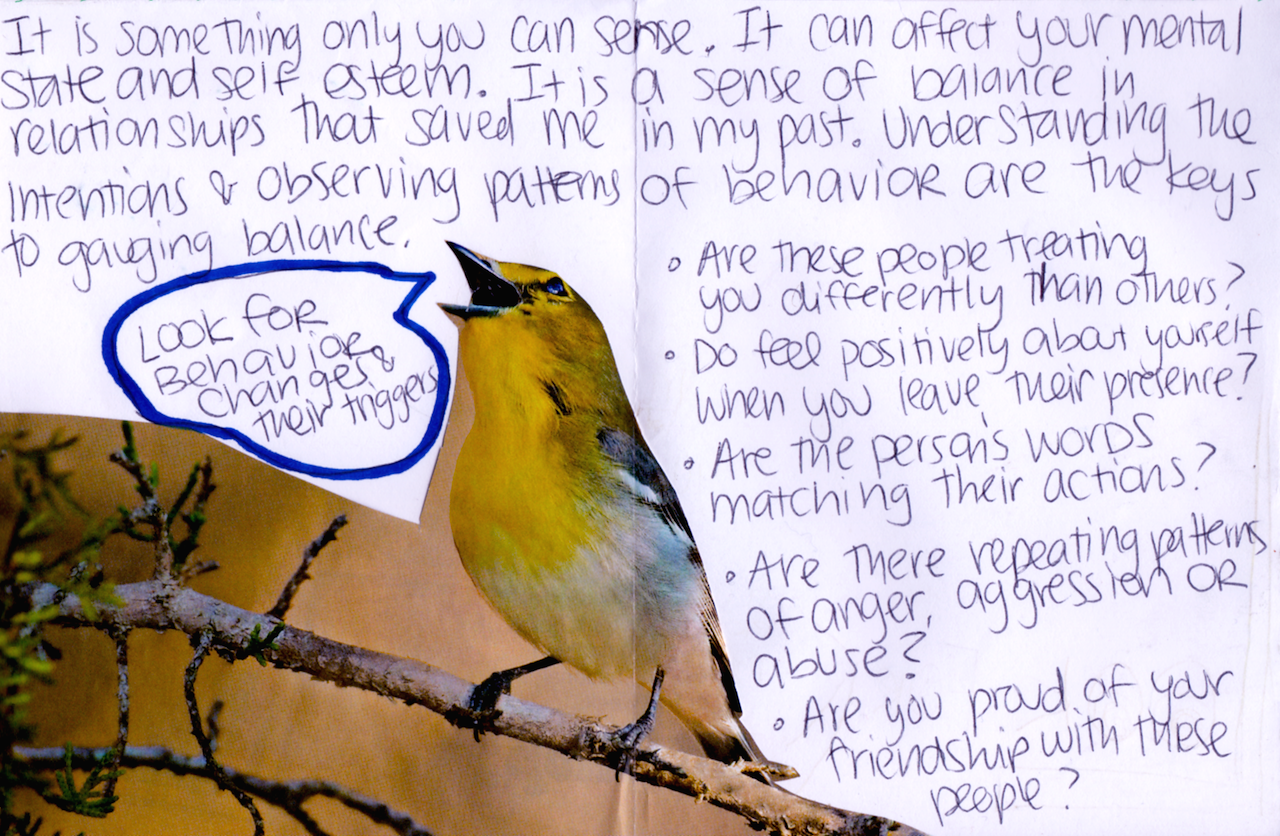 It is something only you can sense. It can affect your mental
state and self esteem. It is a sense of balance in
relationships that saved me in my past. Understanding the
Intentions & observing patterns of behavior are the keys
to gauging balance.
Look for
Behavior
changes &
their triggers
• Are these people treating
you differently than others?
• Do feel positively about yourself
when you leave their presence?
• Are the person's words
matching their actions?
• Are there repeating patterns
of anger, aggression or
abuse?
• Are you proud of your
friendship with these
people?